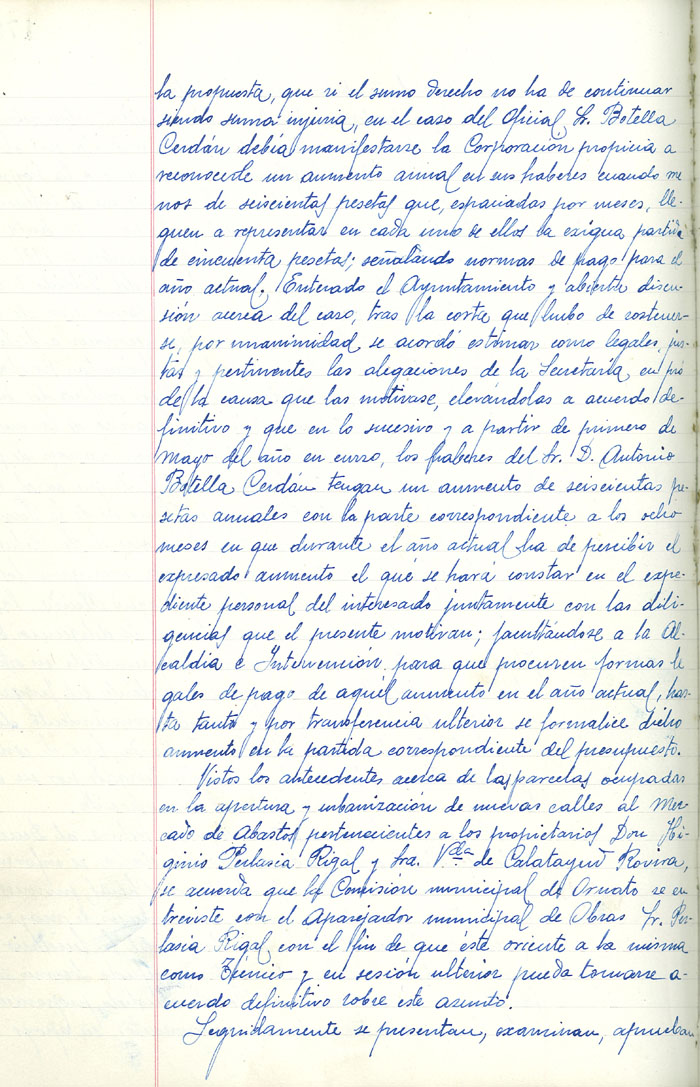 la propuesta, que si el sumo derecho no ha de continuar
siendo suma injuria, en el caso del Oficial, Sr. Botella
Cerdán debía manifestarse la Corporación propicia a
reconocerle un aumento anual en sus haberes cuando me
nos de seiscientas pesetas que, espaciadas por meses, lle-
guen a representar en cada uno de ellos la exigua partida
de cincuenta pesetas; señalando normas de pago para el
año actual. Enterado el Ayuntamiento y abierta discu-
sión acerca del caso, tras la corta que hubo de sostener-
se, por unanimidad se acordó estimar como legales, jus-
tas y pertinentes las alegaciones de la Secretaría en pró
de la causa que las motivase, elevándolas a acuerdo de-
finitivo y que en lo sucesivo y a partir de primero de
Mayo del año en curso, los haberes del Sr. D. Antonio
Botella Cerdán tengan un aumento de seiscientas pe
setas anuales con la parte correspondiente a los ocho
meses en que durante el año actual ha de percibir el
expresado aumento el qué se hará constar en el expe-
diente personal del interesado juntamente con las dili-
gencias que el presente motivan; facultándose a la Al-
caldía e Intervención para que procuren formas le
gales de pago de aquél aumento en el año actual, has-
ta tanto y por transferencia ulterior se formalice dicho
aumento en la partida correspondiente del presupuesto.
Vistos los antecedentes acerca de las parcelas ocupadas
en la apertura y urbanización de nuevas calles al Mer-
cado de Abastos pertenecientes a los propietarios Don Hi-
ginio Perlasia Rigal y Sra. Vda. de Calatayud Rovira,
se acuerda que la Comisión municipal de Ornato se en
treviste con el Aparejador municipal de Obras Sr. Per-
lasia Rigal con el fin de que éste oriente a la misma
como Técnico y en sesión ulterior pueda tomarse a-
cuerdo definitivo sobre este asunto.
Seguidamente se presentan, examinan, aprueban